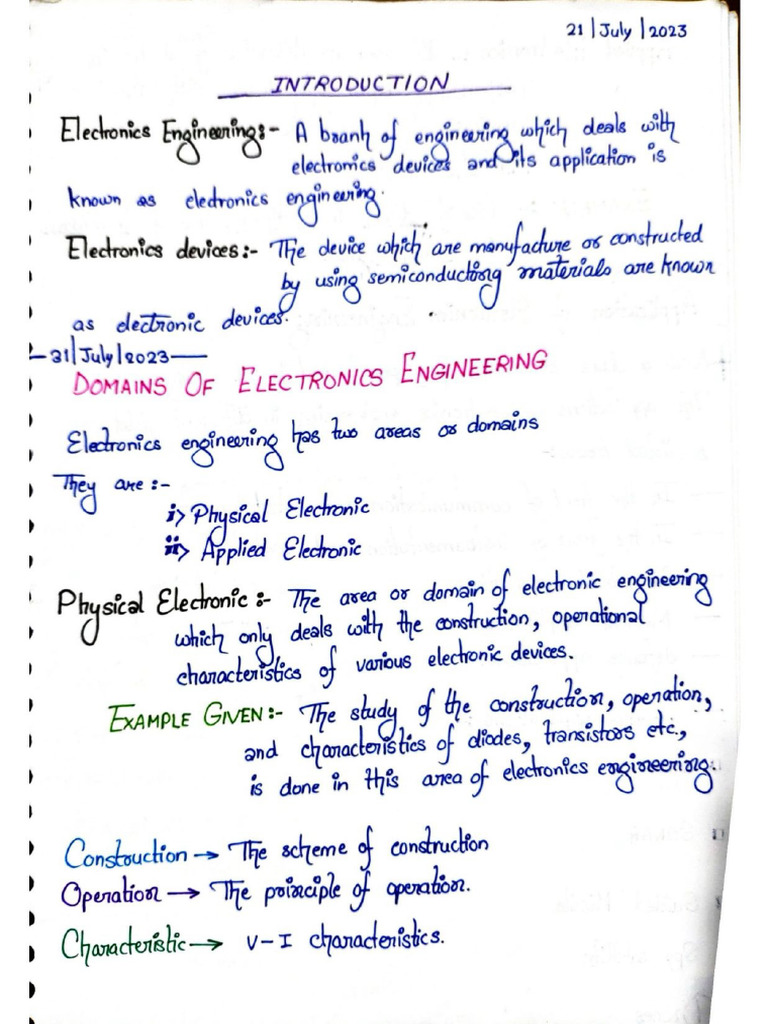 21 | July | 2023
INTRODUCTION
Electronics Engineering:- A branh of engineering which deals with
electronics devices and its application is
known as electronics engineering.
Electronics devices:- The device which are manufacture or constructed
by using semiconducting materials are known
as electronic devices.
31 | July | 2023
DOMAINS OF ELECTRONICS ENGINEERING
Electronics engineering has two areas or domains
They are :-
i> Physical Electronic
ii> Applied Electronic
Physical Electronic :- The area or domain of electronic engineering
which only deals with the construction, operational
characteristics of various electronic devices.
EXAMPLE GIVEN:- The study of the construction, operation,
and characteristics of diodes, transistors etc.,
is done in this area of electronics engineering.
Construction → The scheme of construction
Operation → The principle of operation.
Characteristic → V-I characteristics.